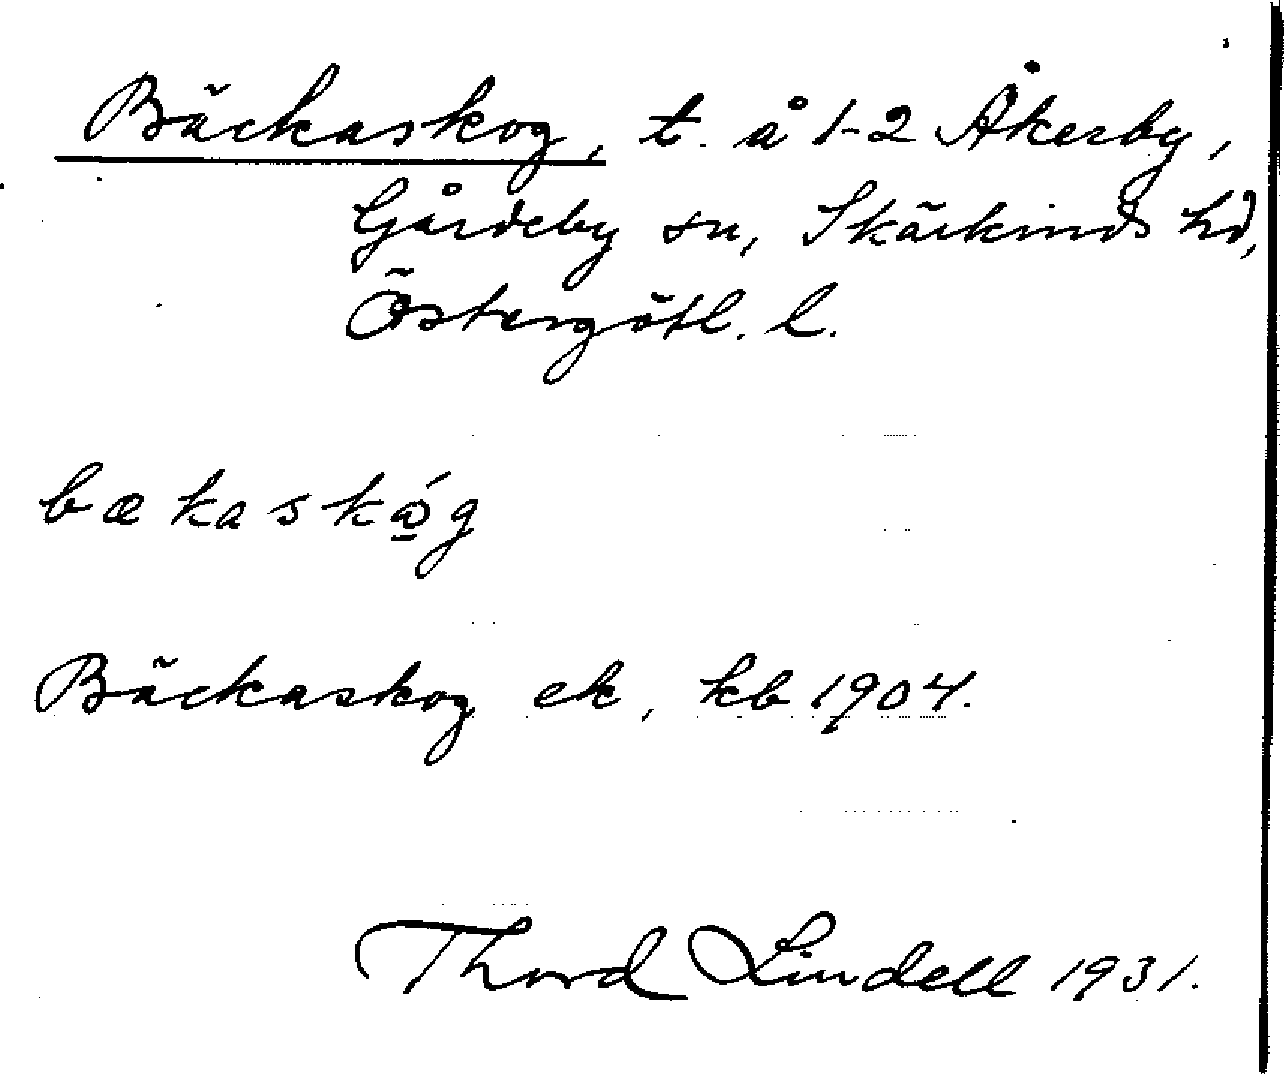 Bäckaskog, t. å 1-2 Åkerby,
Gårdeby sn, Skärkinds hd,
Östergötl. l.
Bäckaskog ek, kb 1904.
Thord Lindell 1931.